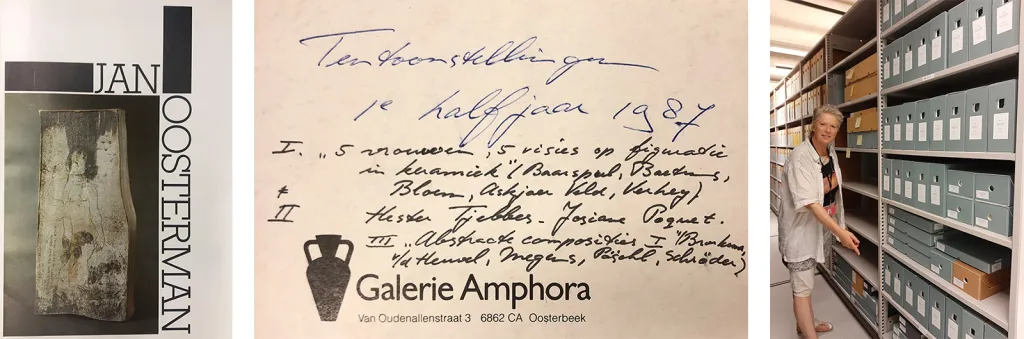 JAN
OOSTERMAN
Tentoonstellingen
1e halfjaar 1987
I. „5 vrouwen, 5 visies op figuratie
in keramiek" (Baarspul, Beetens,
Bloem, Askjaer Veld, Verheg)
II Hester Tjebbes - Josiane Poquet.
III „Abstracte composities I" (Brokma,
v/d Heuvel, Megens, Pöschl, Schröder)
Galerie Amphora
Van Oudenallenstraat 3 6862 CA Oosterbeek